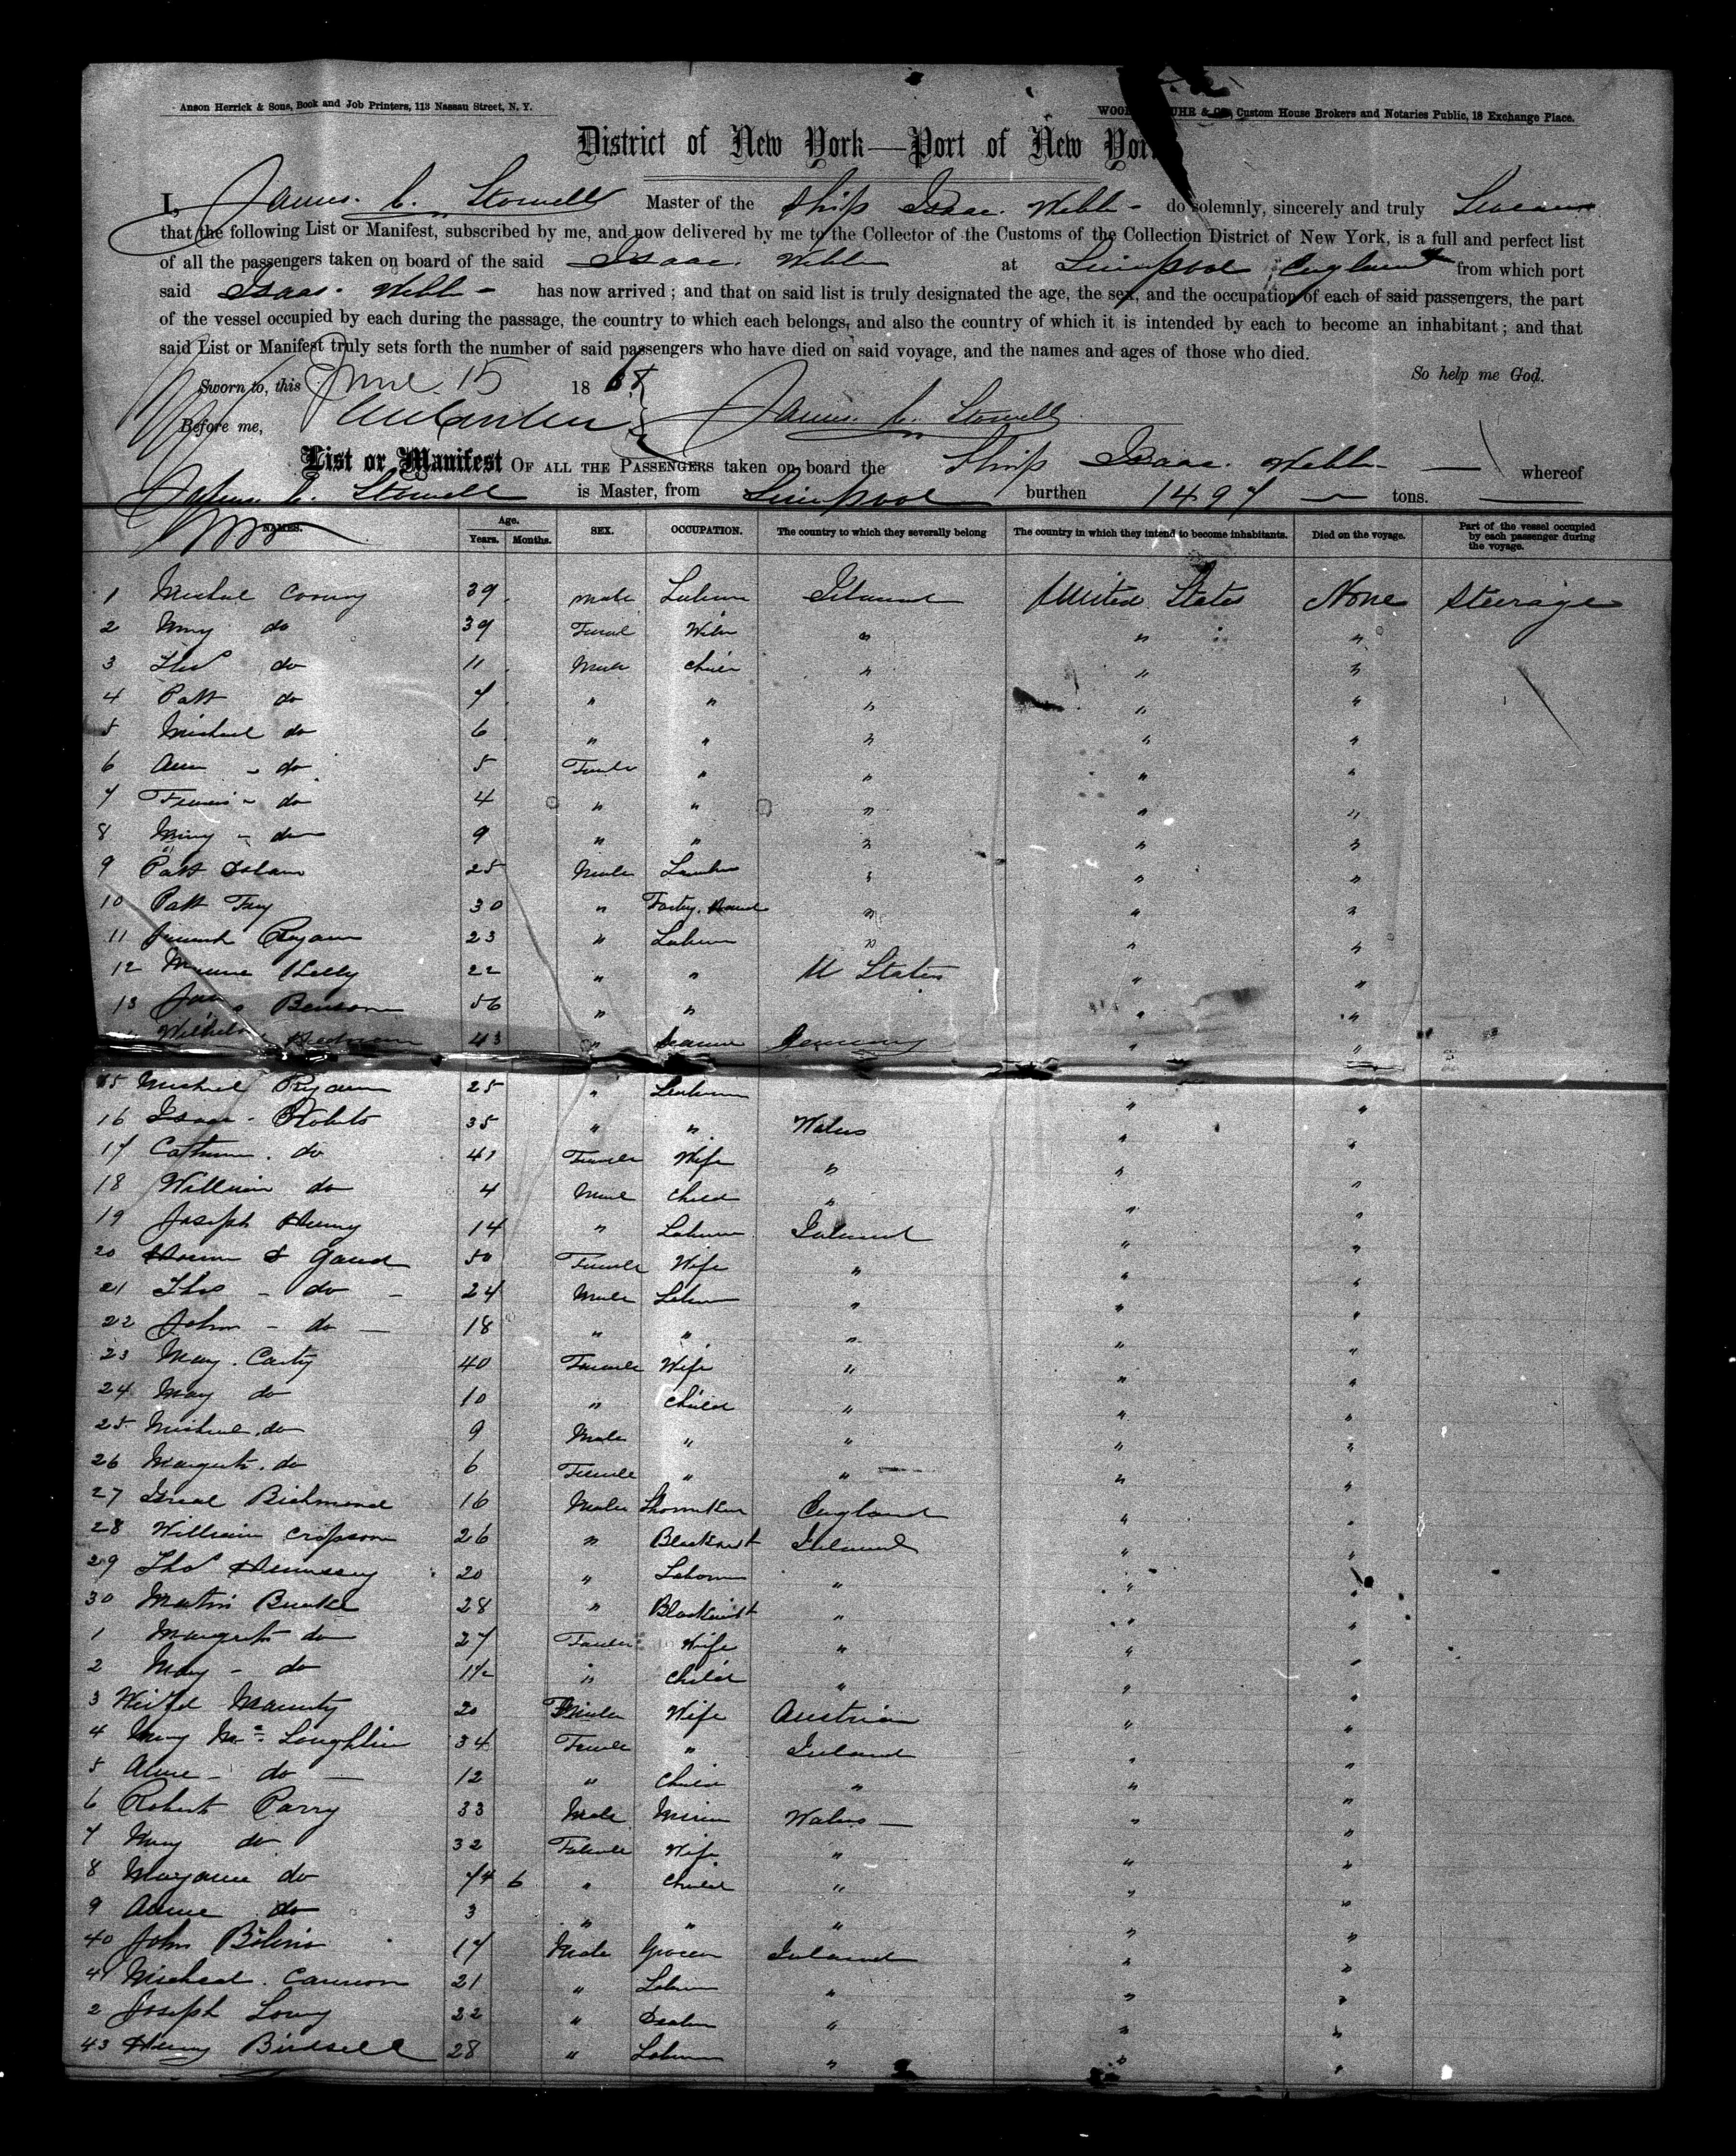 Anson Herrick & Sons, Book and Job Printers, 113 Nassau Street, N. Y.
Custom House Brokers and Notaries Public, 18 Exchange Place.
District of New York—Port of New York
I, James. C. Stowell Master of the Ship Isaac. Webb - do solemnly, sincerely and truly Swear
that the following List or Manifest, subscribed by me, and now delivered by me to the Collector of the Customs of the Collection District of New York, is a full and perfect list
of all the passengers taken on board of the said Isaac. Webb at Liverpool England from which port
said Isaac. Webb - has now arrived; and that on said list is truly designated the age, the sex, and the occupation of each of said passengers, the part
of the vessel occupied by each during the passage, the country to which each belongs, and also the country of which it is intended by each to become an inhabitant; and that
said List or Manifest truly sets forth the number of said passengers who have died on said voyage, and the names and ages of those who died.
So help me God.
Sworn to, this June 15 1868
Before me, James. C. Stowell
List or Manifest OF ALL THE PASSENGERS taken on board the Ship Isaac. Webb — whereof
James C. Stowell is Master, from Liverpool burthen 1497 — tons.
NAMES. Age. Years. Months. SEX. OCCUPATION. The country to which they severally belong The country in which they intend to become inhabitants. Died on the voyage. Part of the vessel occupied by each passenger during the voyage.
1 Michal 39 male Labour Ireland United States None Steerage
2 Mary do 39 Femal Wife " " "
3 Thos do 11 Male Child " " "
4 Patt do 7 " " " " "
5 Michael do 6 " " " " "
6 Ann - do 5 Female " " " "
7 do 4 " " " " "
8 Mary - do 9 " " " " "
9 Patt 25 Male " " "
10 Patt 30 " " " "
11 Ryan 23 " Labour " " "
12 Kelly 22 " " U States " "
13 Benson 56 " " " "
43 " Germany " "
15 Michael Ryan 25 " Labour " "
16 Isaac - Roberts 35 " " Wales " "
17 Catherine. do 41 Female Wife " " "
18 William do 4 Male Child " " "
19 Joseph Henry 14 " Labour Ireland " "
20 50 Female Wife " " "
21 Thos - do - 24 Male Labour " " "
22 John - do — 18 " " " " "
23 Mary. Carty 40 Female Wife " " "
24 Mary do 10 " Child " " "
25 Michael. do 9 Male " " " "
26 Margrett. do 6 Female " " " "
27 Richmond 16 Male Shoemaker England " "
28 William Cropson 26 " Blacksmith Ireland " "
29 Thos Hennessy 20 " Labour " " "
30 Martin Burke 28 " Blacksmith " " "
1 Margrett do 27 Female Wife " " "
2 Mary - do 1½ " Child " " "
3 20 Female Wife Austrian " "
4 Mary Mc Loughlin 34 Female " Ireland " "
5 Anne - do — 12 " Child " " "
6 Robert Parry 33 Male Miner Wales — " "
7 Mary do 32 Female Wife " " "
8 Maryanne do 6 " Child " " "
9 Annie do 3 " " " " "
40 John 17 Male Grocer Ireland " "
41 Michael. Cannon 21 " Labour " " "
2 Joseph Lowry 22 " " " "
43 Henry Birdsell 28 " Labour " " "